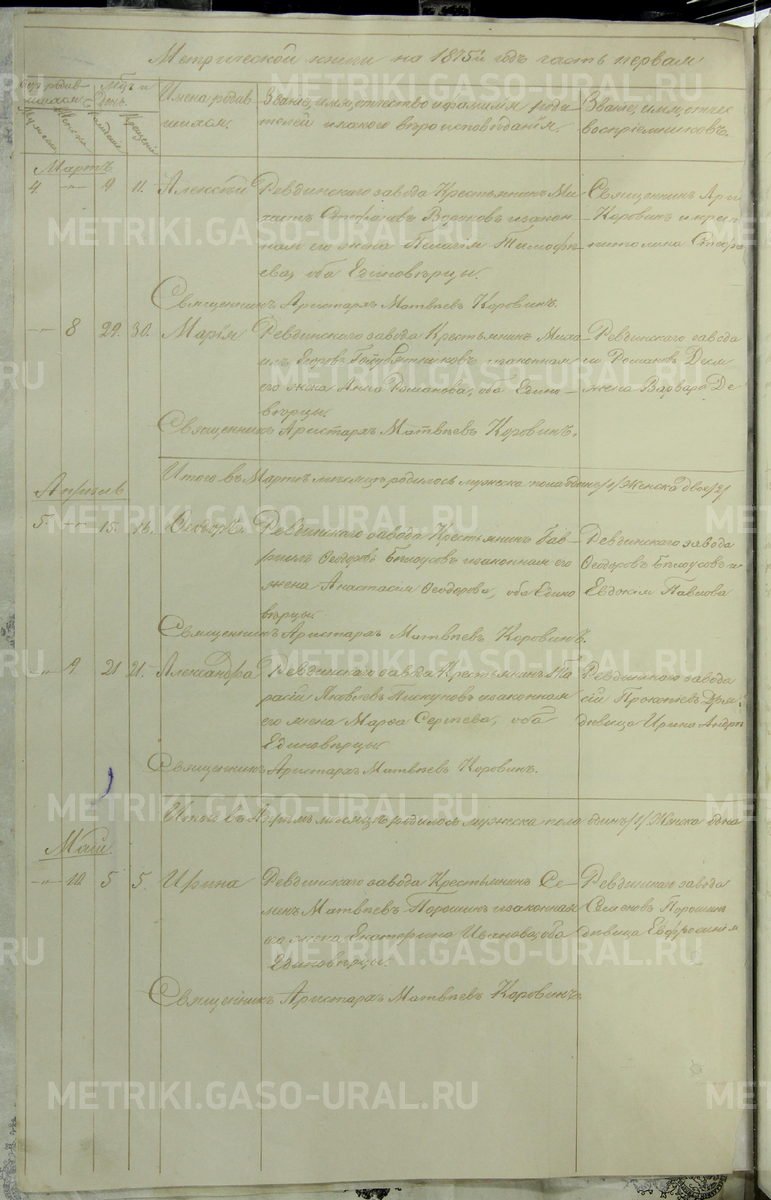 Метрической книги на 1875й годъ часть первая
Мѣс. и
День.
Имена родив-
шихся.
Званіе, имя, отчество и фамилія роди-
телей и какого вѣроисповѣданія.
Званіе, имя, отчес
воспріемниковъ.
Мартъ
4. -"- 9 11. Алексѣй
Ревдинскаго завода Крестьянинъ
и закон
ная его жена Пелагія Тимофѣ-
ева, оба Единовѣрцы.
Священникъ
Коровинъ
Священникъ Аристархъ Матвѣевъ Коровинъ.
-"- 8 29. 30. Марія
Ревдинскаго завода Крестьянинъ Миха-
илъ Егоровъ и законная
его жена Анна Романова, оба Едино-
вѣрцы.
Ревдинскаго завода
жена Варвара
Священникъ Аристархъ Матвѣевъ Коровинъ.
Итого въ Мартѣ мѣсяцѣ родилось мужска пола /1/ Женска двое /2/
Апрѣль
5. -"- 15. 16. Ѳеодоръ
Ревдинскаго завода Крестьянинъ Гав-
рiилъ Ѳеодоровъ Бѣлоусовъ и законная его
жена Анастасія Ѳеодорова, оба Едино
вѣрцы.
Ревдинскаго завода
Ѳеодоровъ Бѣлоусовъ и
Евдокія Павлова
Священникъ Аристархъ Матвѣевъ Коровинъ.
-"- 9. 21 21. Александра
Ревдинскаго завода Крестьянинъ Та
расій Яковлевъ Пискуновъ и законная
его жена Марѳа Сергѣева, оба
Единовѣрцы
Ревдинскаго завода
сій Прокопьевъ
дѣвица Ирина Андре
Священникъ Аристархъ Матвѣевъ Коровинъ.
Итого въ Апрѣлѣ мѣсяцѣ родилось мужска пола одинъ /1/ Женска одна
Май.
-"- 10. 5 5. Ирина
Ревдинскаго завода Крестьянинъ Се-
менъ Матвѣевъ Порошинъ и законная
его жена Екатерина Иванова, оба
Единовѣрцы.
Ревдинскаго завода
Семеновъ Порошин
дѣвица Евфросинія
Священникъ Аристархъ Матвѣевъ Коровинъ.
METRIKI.GASO-URAL.RU